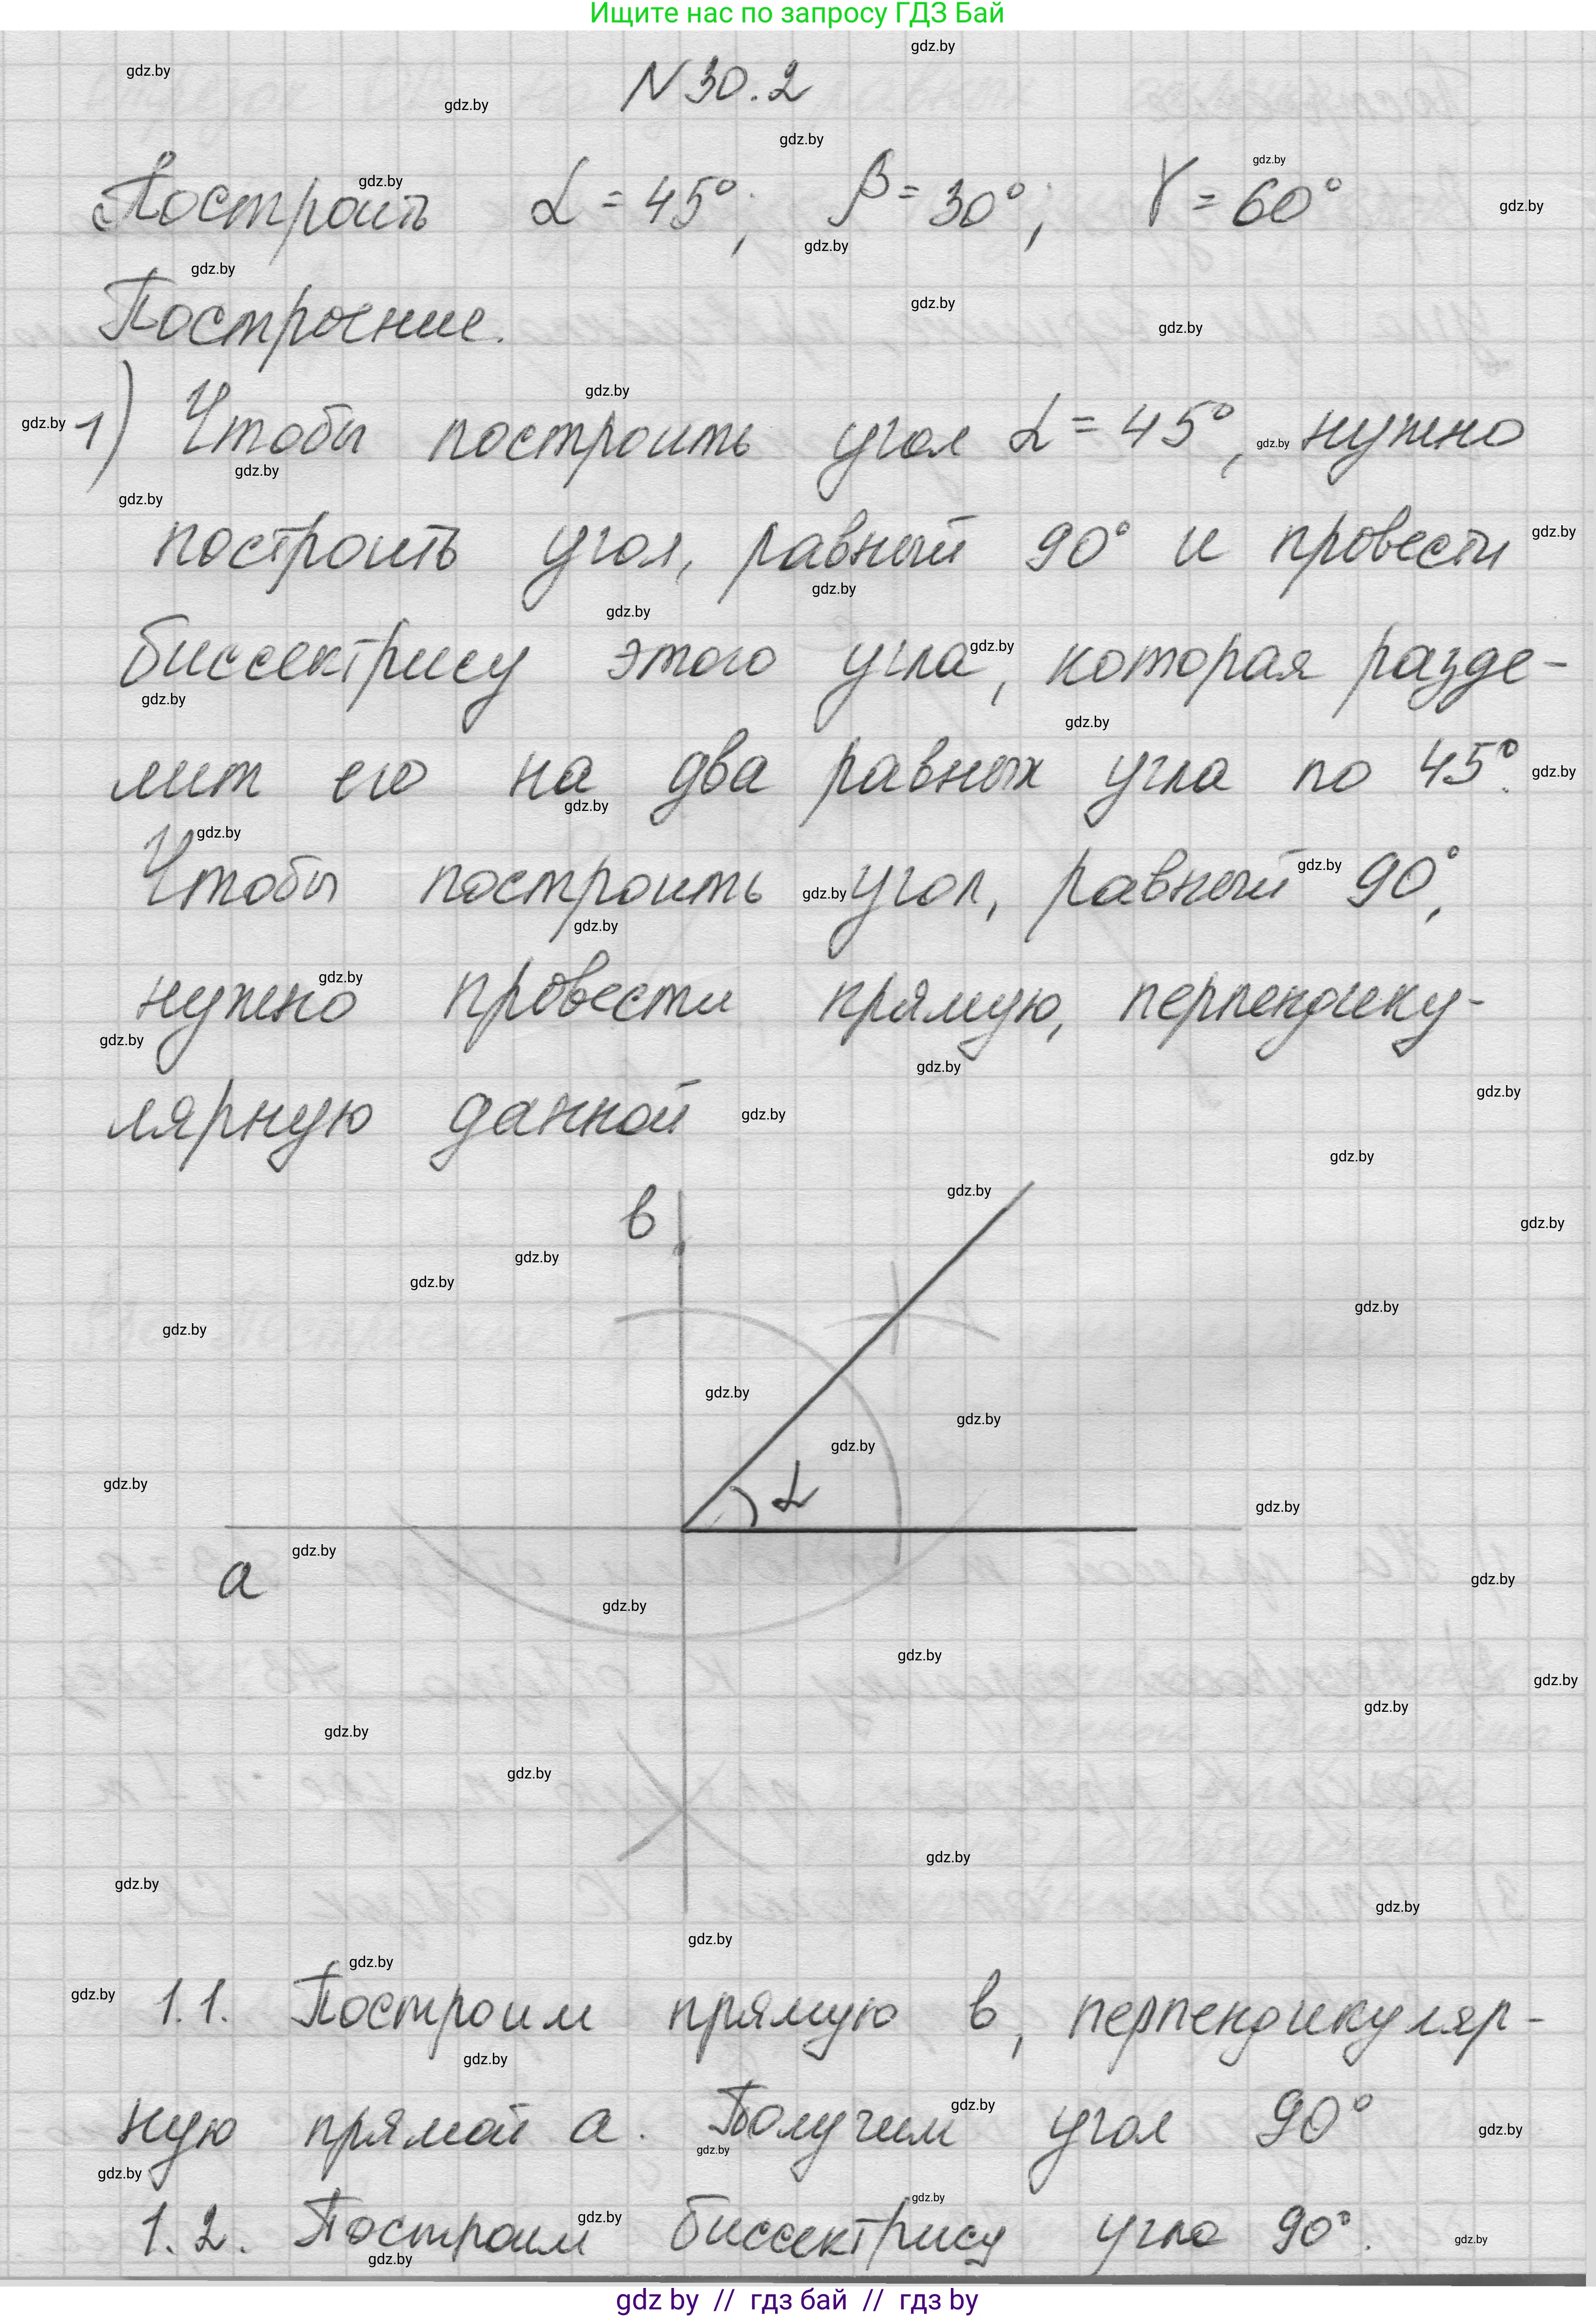 Ищите нас по запросу ГДЗ Бай
N 30.2
Построить α = 45°; β = 30°; γ = 60°
Построение.
1) Чтобы построить угол α = 45°, нужно
построить угол, равный 90° и провести
биссектрису этого угла, которая разде-
лит его на два равных угла по 45°.
Чтобы построить угол, равный 90°,
нужно провести прямую, перпендику-
лярную данной
в
α
а
1.1. Построим прямую в, перпендикуляр-
ную прямой а. Получим угол 90°
1.2. Построим биссектрису угла 90°.
gdz by // гдз бай // гдз by